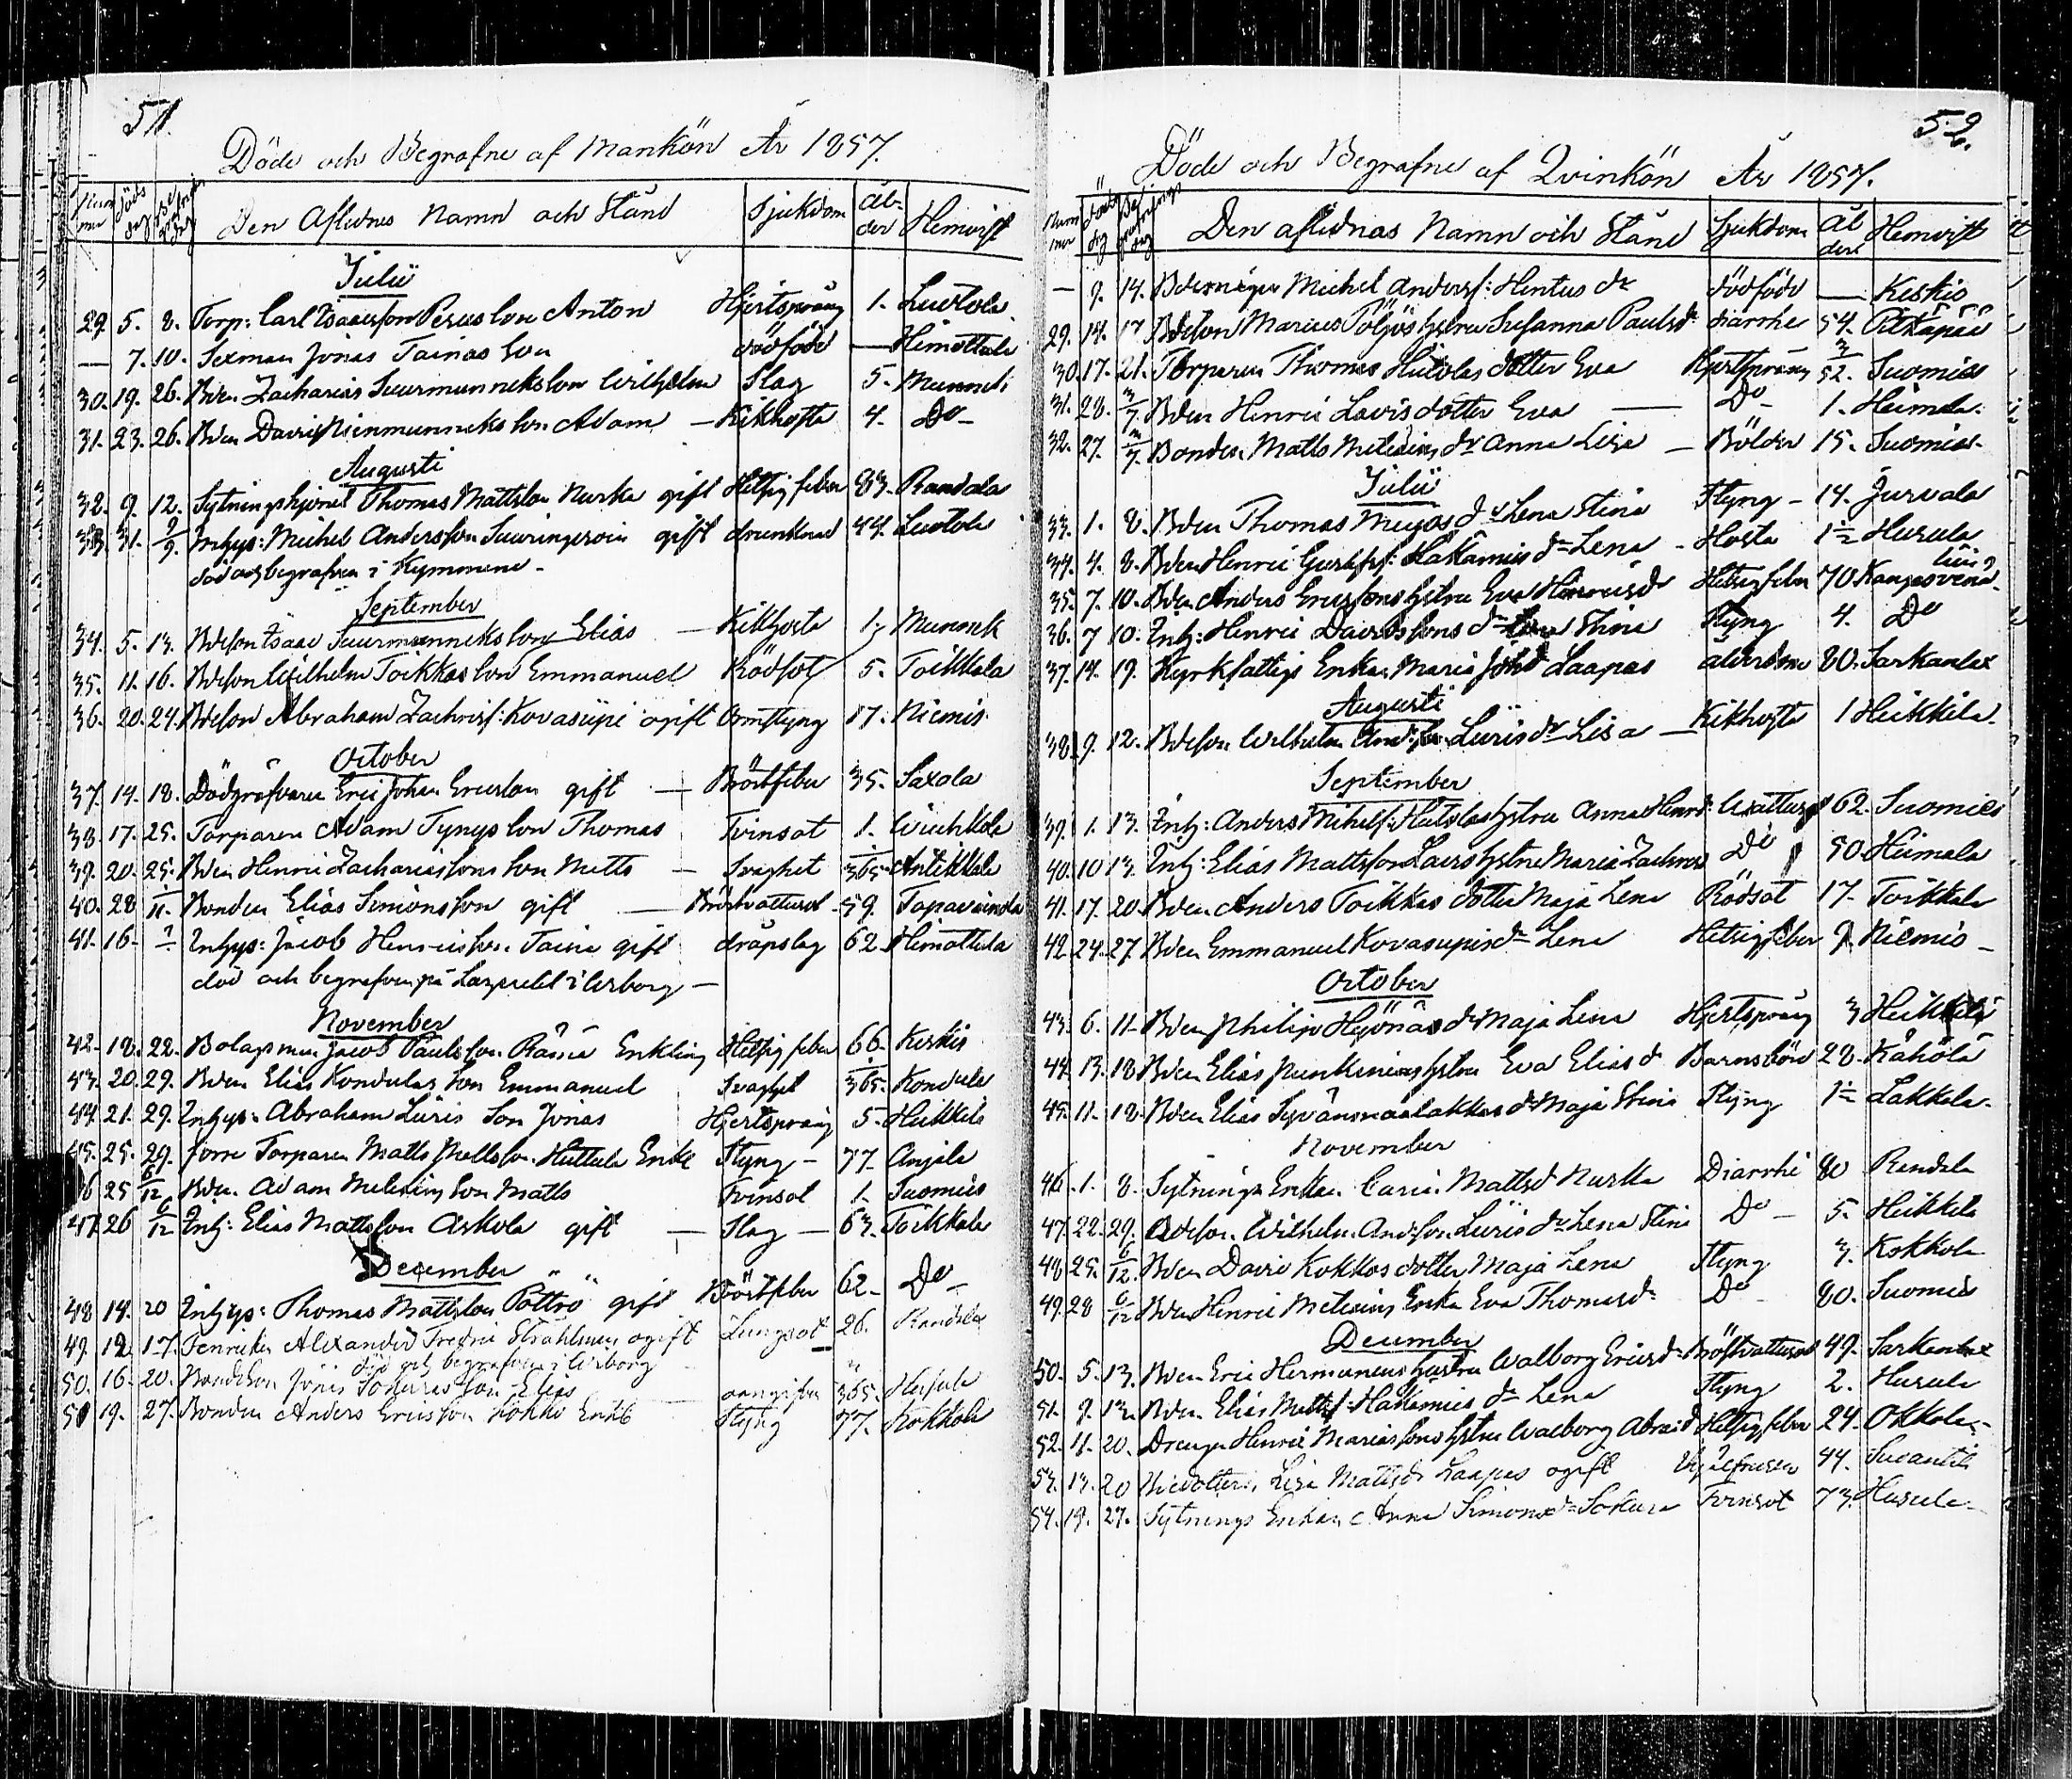 51.
Döde och Begrafne af Mankön År 1857.
Num mer
Döds dag
Begrafnings dag
Den Aflidnes Namn och Stånd
Sjukdom
Ålder
Hemvist
Julii
29. 5. 8. Torp: Carl Isaacsson Perus son Anton Hjertsprång 1. Luotola
— 7. 10. Sexman Jonas Tainas son dödfödd — Himottula
30. 19. 26. Bden Zacharias Suurmunneks son Wilhelm Slag 5. Munneki
31. 23. 26. Bden David Nienmunneks son Adam — Kikhosta 4. Do
Augusti
32. 9. 12. Sytningshjonet Thomas Mattsson Nurka gift Hetsig feber 83. Randala
33. 31. 9/9. Inhys: Michel Andersson Suuringeroin gift drunknad 44. Luotola
död och begrafven i Kymmene
September
34. 5. 13. Bdeson Isaac Suurmunneks son Elias — Kikhosta 1. Munnek
35. 11. 16. Bdeson Wilhelm Toikkas son Emmanuel Rödsot 5. Toikkala
36. 20. 24. Bdeson Abraham Zachrisf: Kovasiipi ogift Ormstyng 17. Niemis
October
37. 14. 18. Dödgräfvaren Eric Johan Ericsson gift — Bröstfeber 35. Saxala
38. 17. 25. Torparen Adam Tynys son Thomas Tvinsot 1.
39. 20. 25. Bden Henric Zachariassons son Matts — Svaghet 1/365 Antikkala
40. 28 1/11. Bonden Elias Simonsson gift — Bröstvattusot 59. Topavainola
41. 16. — Inhys: Jacob Henricsson Taina gift dråpslag 62. Himottula
död och begrafven på Lazarett i Wiborg —
November
42. 18. 22. Bolagsman Jacob Paulsson Rämä Enkling Hetsig feber 66. Keskis
43. 20. 29. Bden Elias Kondulas son Emmanuel Svaghet 1/365. Kondula
44. 21. 29. Inhys: Abraham Liiris Son Jonas Hjertsprång 5. Heikkilä
45. 25. 29. förre Torparen Matts Mattsson Huttula Enkl Styng — 77. Anjala
46 25 6/12 Bden Adam Metisius son Matts Tvinsot 1. Suomies
47. 26 6/12 Inh: Elias Mattsson Askola gift — Slag — 63. Toikkala
December
48 14. 20 Inhys: Thomas Mattsson Pöttrö gift Bröstfeber 62. Do
49. 12. 17. Fenriken Alexander Fredric Strahlman ogift Lungsot 26. Randala
död och begrafven i Wiborg
50. 16. 20. Bondeson Jonas son Elias oangifven 365. Husula
51 19. 27. Bonden Anders Ericsson Kokko Enkl Styng 77. Kokkola
52.
Döde och Begrafne af Qvinkön År 1857.
Num mer
Döds dag
Begrafnings dag
Den aflidnas Namn och Stånd
Sjukdom
Ålder
Hemvist
— 9. 14. Michel Andersf: Hentus dr dödfödd — Keskis
29. 14. 17 Bdeson Marcus Pöljös hstru Susanna Paulsdr diarrhe 54. Pitkäpää
30. 17. 21. Torparen Thomas Hutolas dotter Eva Hjertsprång 3/52. Suomies
31. 28. 3/7. Bden Henric Lavis dotter Eva — Do 1. Heimala
32. 27. 3/7. Bonden Matts Metisius dr Anna Lisa — Bölder 15. Suomies
Julii
33. 1. 8. Bden Thomas dr Lena Stina Styng — 14. Jurvala
34. 4. 8. Bden Henric Gustfsf: Hakamies dr Lena — Hosta 1½ Husula
35. 7. 10. Bden Anders Ericssons hstru Eva Henricsdr Hetsig feber 70. Kangasvena
36. 7 10. Inh: Henric Davidssons dr Stina Styng 4. Do
37. 14. 19. Kyrkfattige Enkan Maria Johsd Laapas ålderdom 80. Sarkanlax
Augusti
38. 9. 12. Bdeson Wilhelm And:son Liiris dr Lisa — Kikhosta 1 Heikkilä
September
39. 1. 13. Inh: Anders Michelf: Hutolas hstru Anna Henrd: Wattusot 62. Suomies
40. 10 13. Inh: Elias Mattsson Lavis hstru Maria Zachrisd Do 50. Heimala
41. 17. 20. Bden Anders Toikkas dotter Maja Lena Rödsot 17. Toikkala
42. 24. 27. Bden Emmanuel Kovasiipis dr Lena Hetsig feber 9. Niemis —
October
43. 6. 11. Bden Philip Hyönäs dr Maja Lena Hjertsprång 3 Heikkilä
44. 13. 18. Bden Elias Punkinens hstru Eva Eliasd Barnsbörd 28. Kähölä
45. 11. 18. Bden Elias dr Maja Stina Styng 1½ Lakkala
November
46. 1. 8. Sytnings Enkan Carin Mattsd Nurka Diarrhé 80 Randala
47. 22. 29. Bdeson Wilhelm And:son Liiris dr Lena Stina Do — 5. Heikkilä
48. 25. 6/12. Bden David Kokkos dotter Maja Lena Styng 3. Kokkola
49. 28 6/12 Bden Henric Metisius Enka Eva Thomasdr Do 80. Suomies
December
50. 5. 13. Bden Eric Hermaneus hustru Walborg Ericsdr Bröstvattusot 49. Sarkanlax
51. 9. 13. Bden Elias Mattsf: Hakamies dr Lena Styng 2. Husula
52. 11. 20. Drängen Henric Mariassons hstru Walborg Abraid Hetsig feber 24. Okkola
53. 13. 20 Lisa Mattsdr Laapas ogift 44. Suvantila
54. 19. 27. Sytnings Enkan Anna Simonsdr Sokura Tvinsot 73. Husula